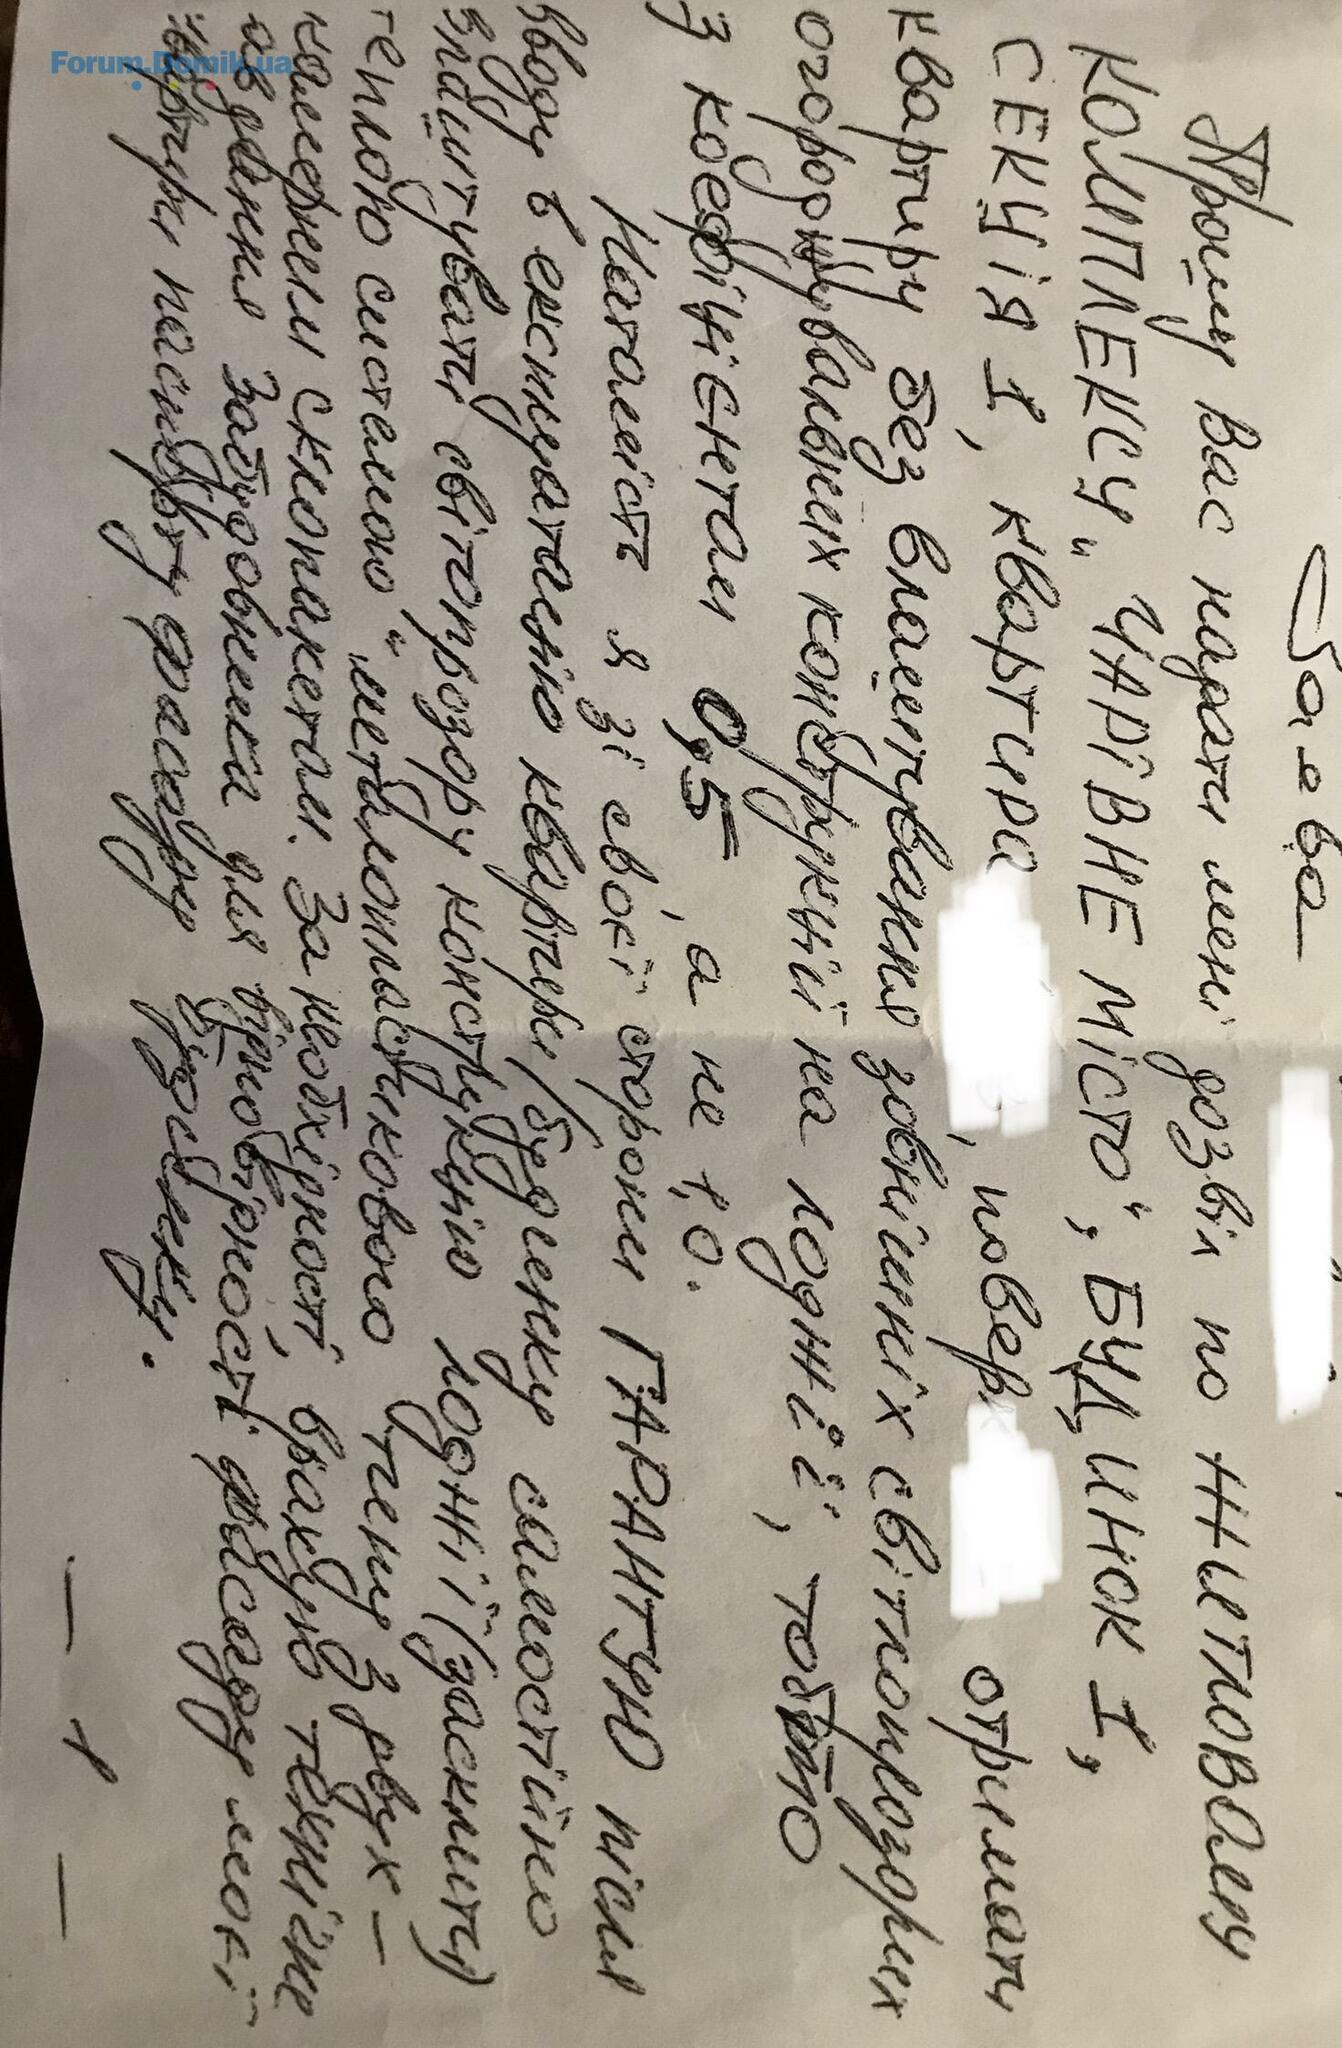 Forum.Domik.ua
Заява
Прошу Вас надати мені дозвіл по житловому
комплексу "ЧАРІВНЕ МІСТО", БУДИНОК 1,
СЕКЦІЯ 1, квартира , поверх отримати
квартиру без влаштування зовнішніх світлопрозорих
огороджувальних конструкцій на лоджії, тобто
з коефіцієнтом 0,5, а не 1,0.
Натомість я зі своєї сторони ГАРАНТУЮ після
вводу в експлуатацію квартири/будинку самостійно
влаштувати світопрозору конструкцію лоджії (засклити)
теплою системою "металопластикового типу з двух-
камерними склопакетами. За необхідності, врахую технічне
завдання Забудовника для відповідності фасаду моєї
квартири паспорту фасаду будинку.
– 1 –